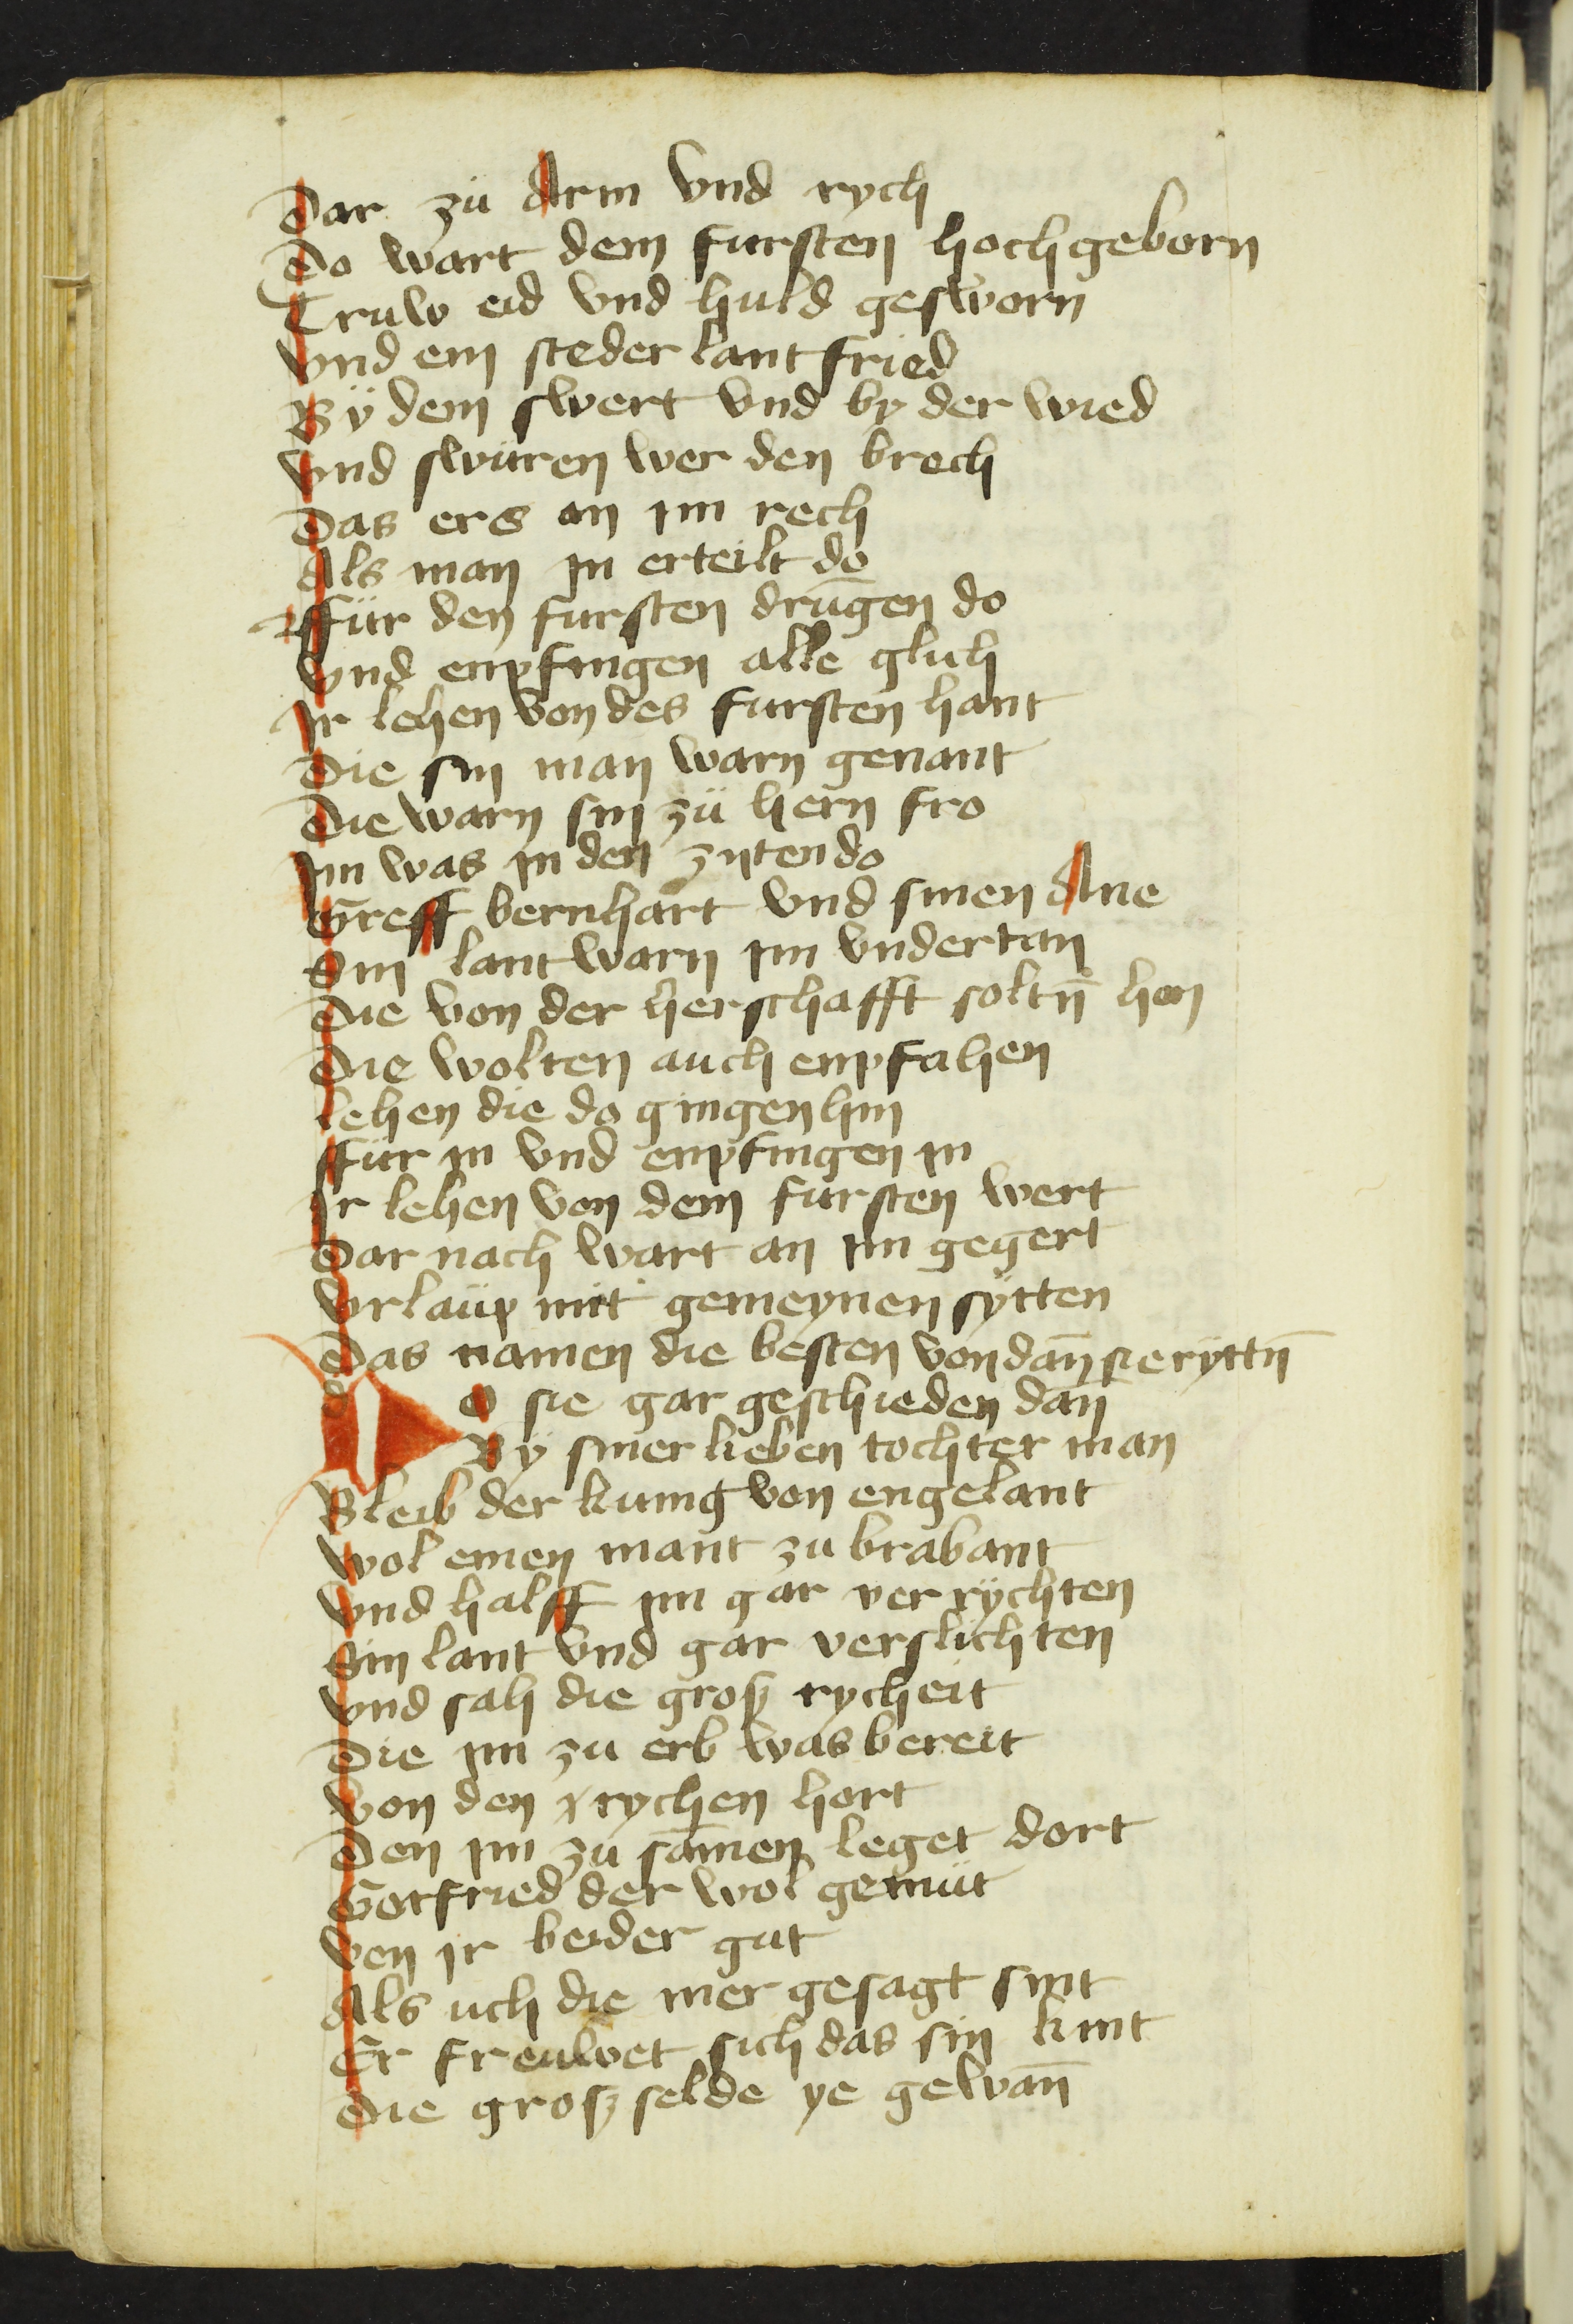 Dar zü Arm vnd rych
Do wart dem fursten hochgeborn
Truw eid vnd huld gesworn
vnd ein steder lantfried
Bÿ dem swert vnd by der wied
vnd swüren wer den brech
Das ers an im rech
Als man in erteilt do
ffür den fursten drūgen do
vnd enpfingen alle glich
Ir lehen von des fursten hant
Die sin man warn genant
Die warn sin zü hern fro
Im was in den zyten do
Greff bernhart vnd sinen Ane
Sin lant warn im vndertan
Die von der herschafft soltn̄ hon
Die wolten auch enpfahen
lehen die do gingen hin
ffür in vnd enpfingen in
Ir lehen von dem fürsten wert
Dar nach wart an im gegert
vrlaüp mit gemeynen sÿtten
Das namen die besten von dan̄ sie ryttn̄
Do sie gar geschieden dan̄
Bÿ siner lieben tochter man
Bleib der kunig von engelant
wol einen mant zu brabant
vnd halff im gar ver rÿchten
Sin lant vnd gar verslichten
vnd sah die grosz rycheit
Die im zu erb was bereit
von den rychen hort
Den im zu samen leget dort
Gotfried der wol gemüt
von ir beider gut
Als uch die mer gesagt sint
Er freuwet sich das sin kint
Die grosz selde ye gewan̄